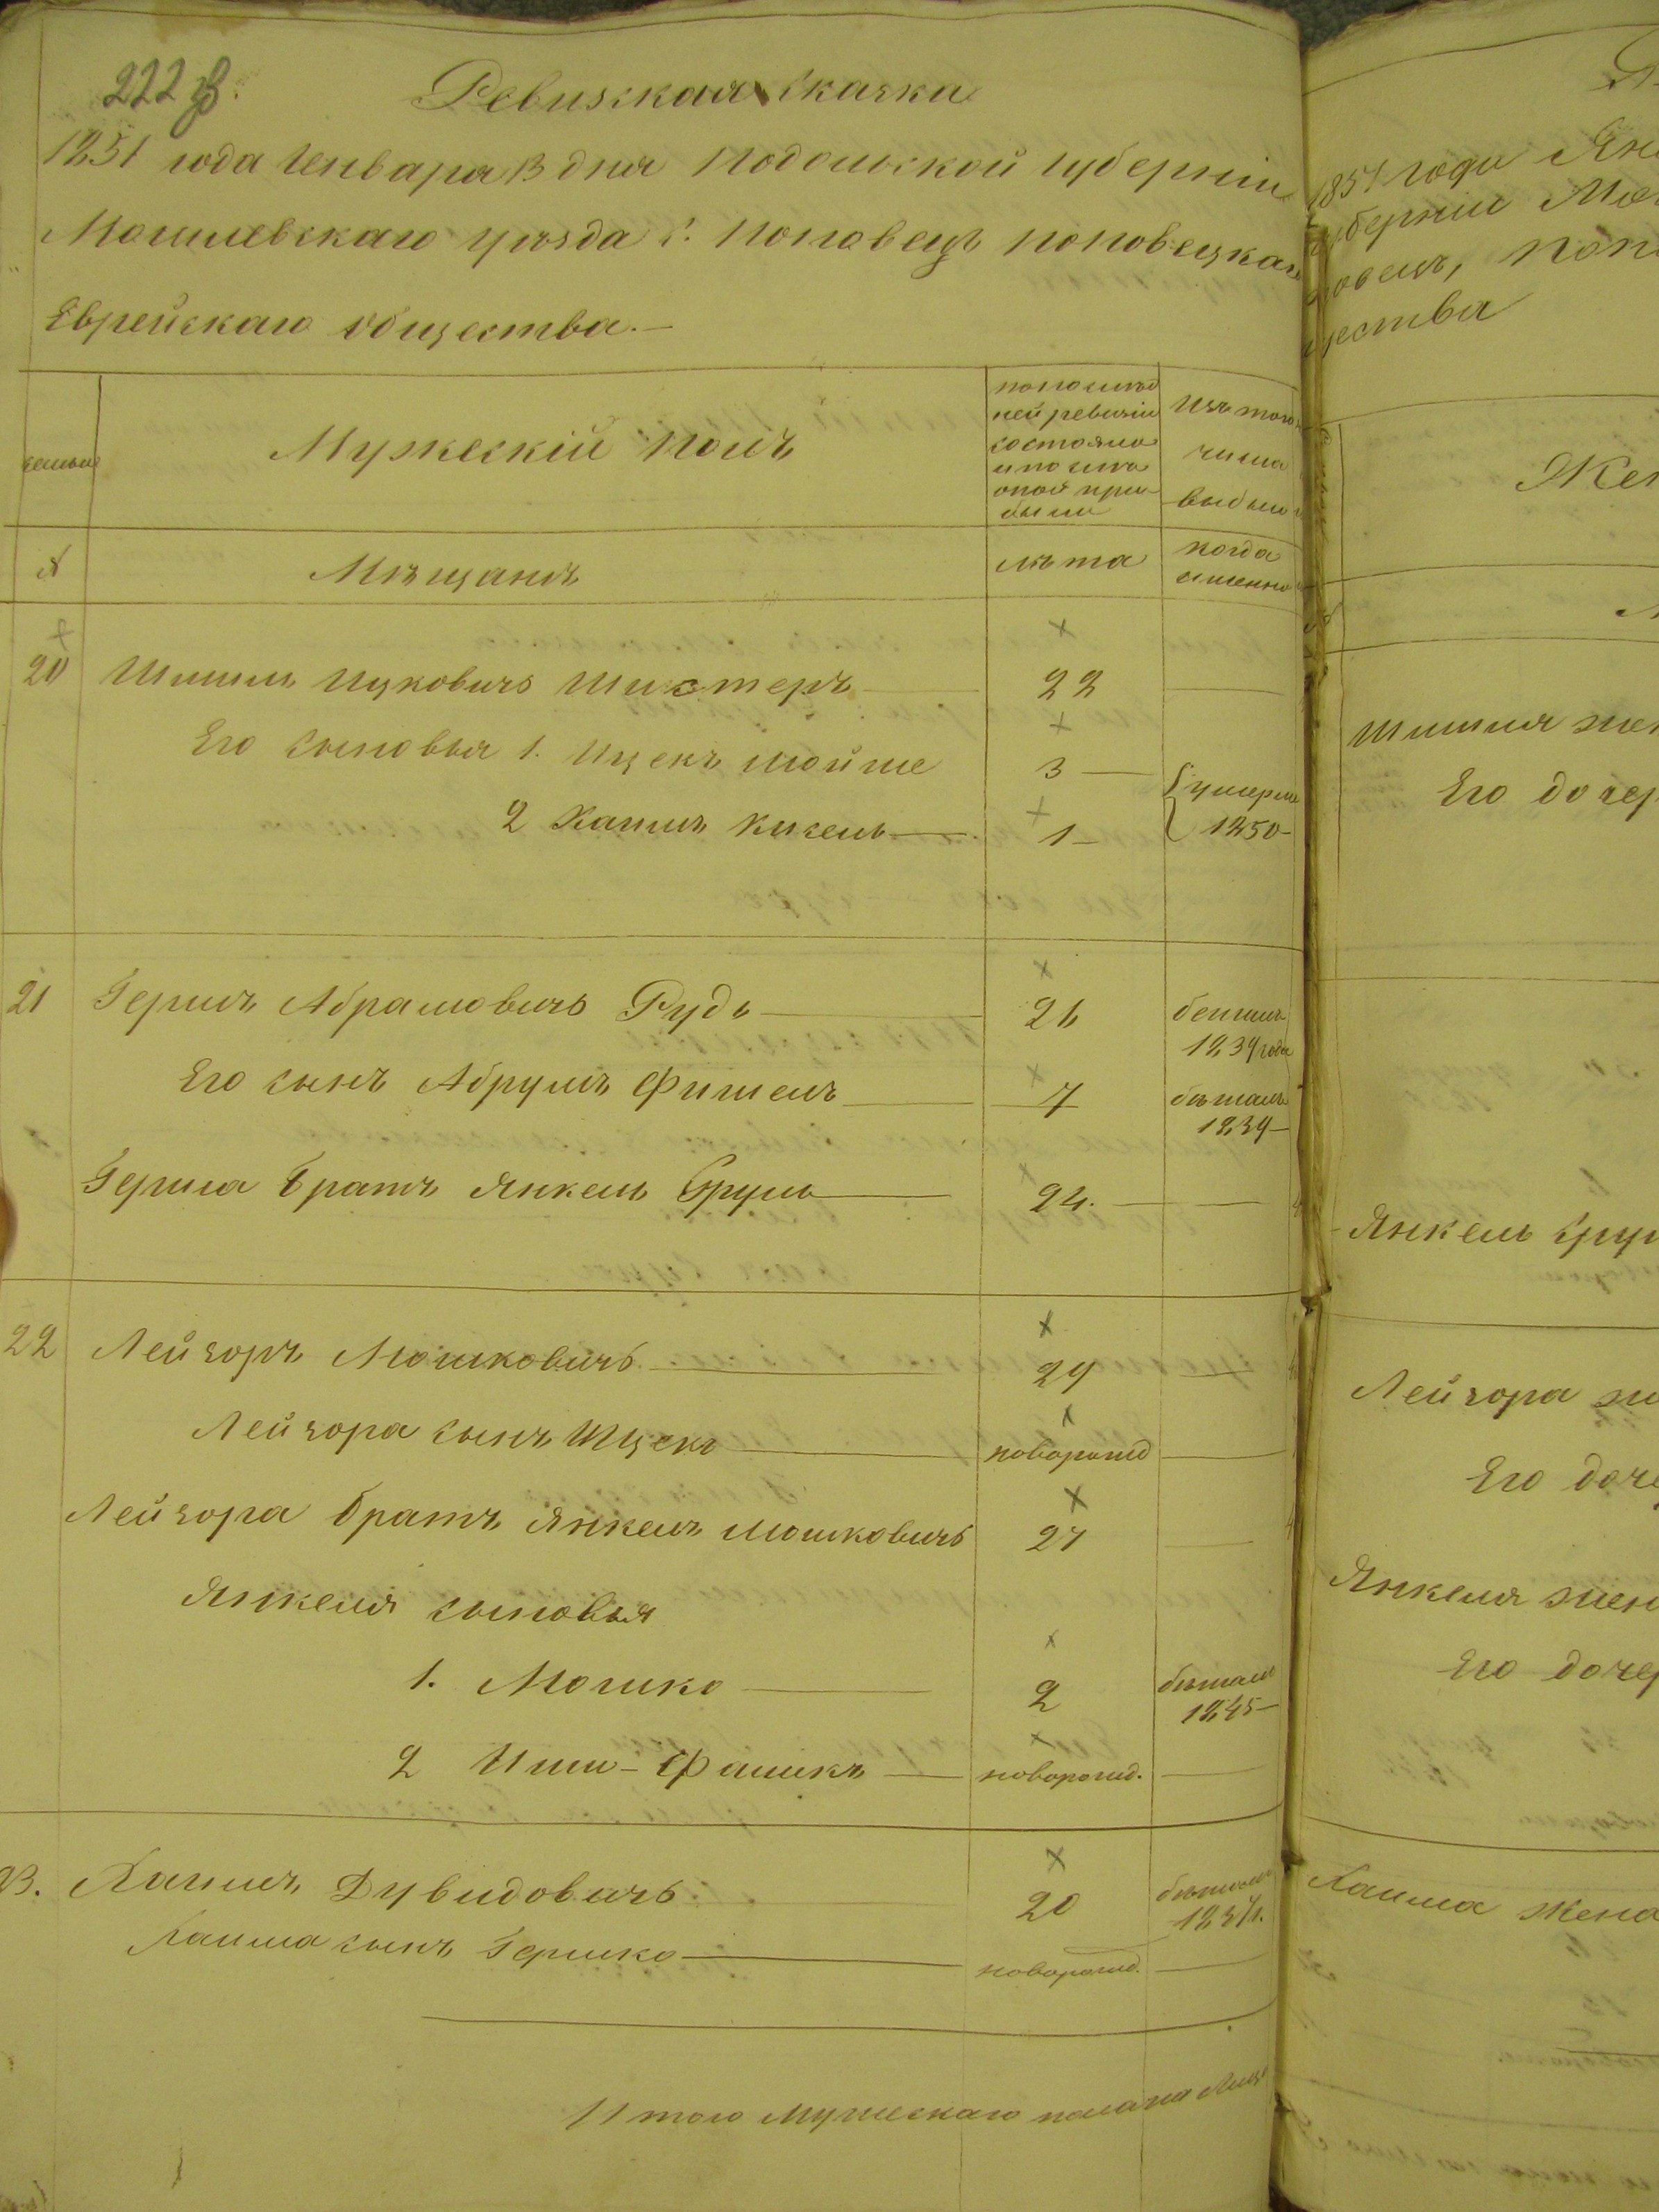 222 об.
Ревизская Сказка
1851 года Генваря 13 дня Подольской Губерніи
Могилевскаго уѣзда С. Поповецъ Поповецкаго
Еврейскаго общества.—
Семьи
Мужескій полъ
по послѣд
ней ревизіи
состояло
и после
оной при-
были
Изъ того
числа
выбыли
№
Мѣщанъ
лѣта
когда
именно
20 Шмиль Ицковичъ Шистеръ 22
Его сыновья 1. Ицекъ Мойше 3
2 Хаимъ Кисель 1
умерли
1850
21 Гершъ Абрамовичъ Рудь 26
бежалъ
1839 года
Его сынъ Абрумъ Фишель 7
бѣжалъ
1839
Герша братъ Янкель Сруль 24.
22 Лейзоръ Мошковичъ 29
Лейзора сынъ Ицекъ новорожд
Лейзора братъ Янкель Мошковичъ 27
Янкеля сыновья
1. Мошко 2
бѣжалъ
1845
2 новорожд.
23. Хаимъ Дувидовичъ 20
бѣжалъ
Хаима сынъ Гершко новорожд.
Итого Мужескаго пола на лицо
1851 года Ян
губерніи Мо
повецъ, Поп
щества
Жен
Шмиля жен
Его дочер
Янкель Срул
Лейзора же
Его доче
Янкеля жен
Его дочер
Хаима жена